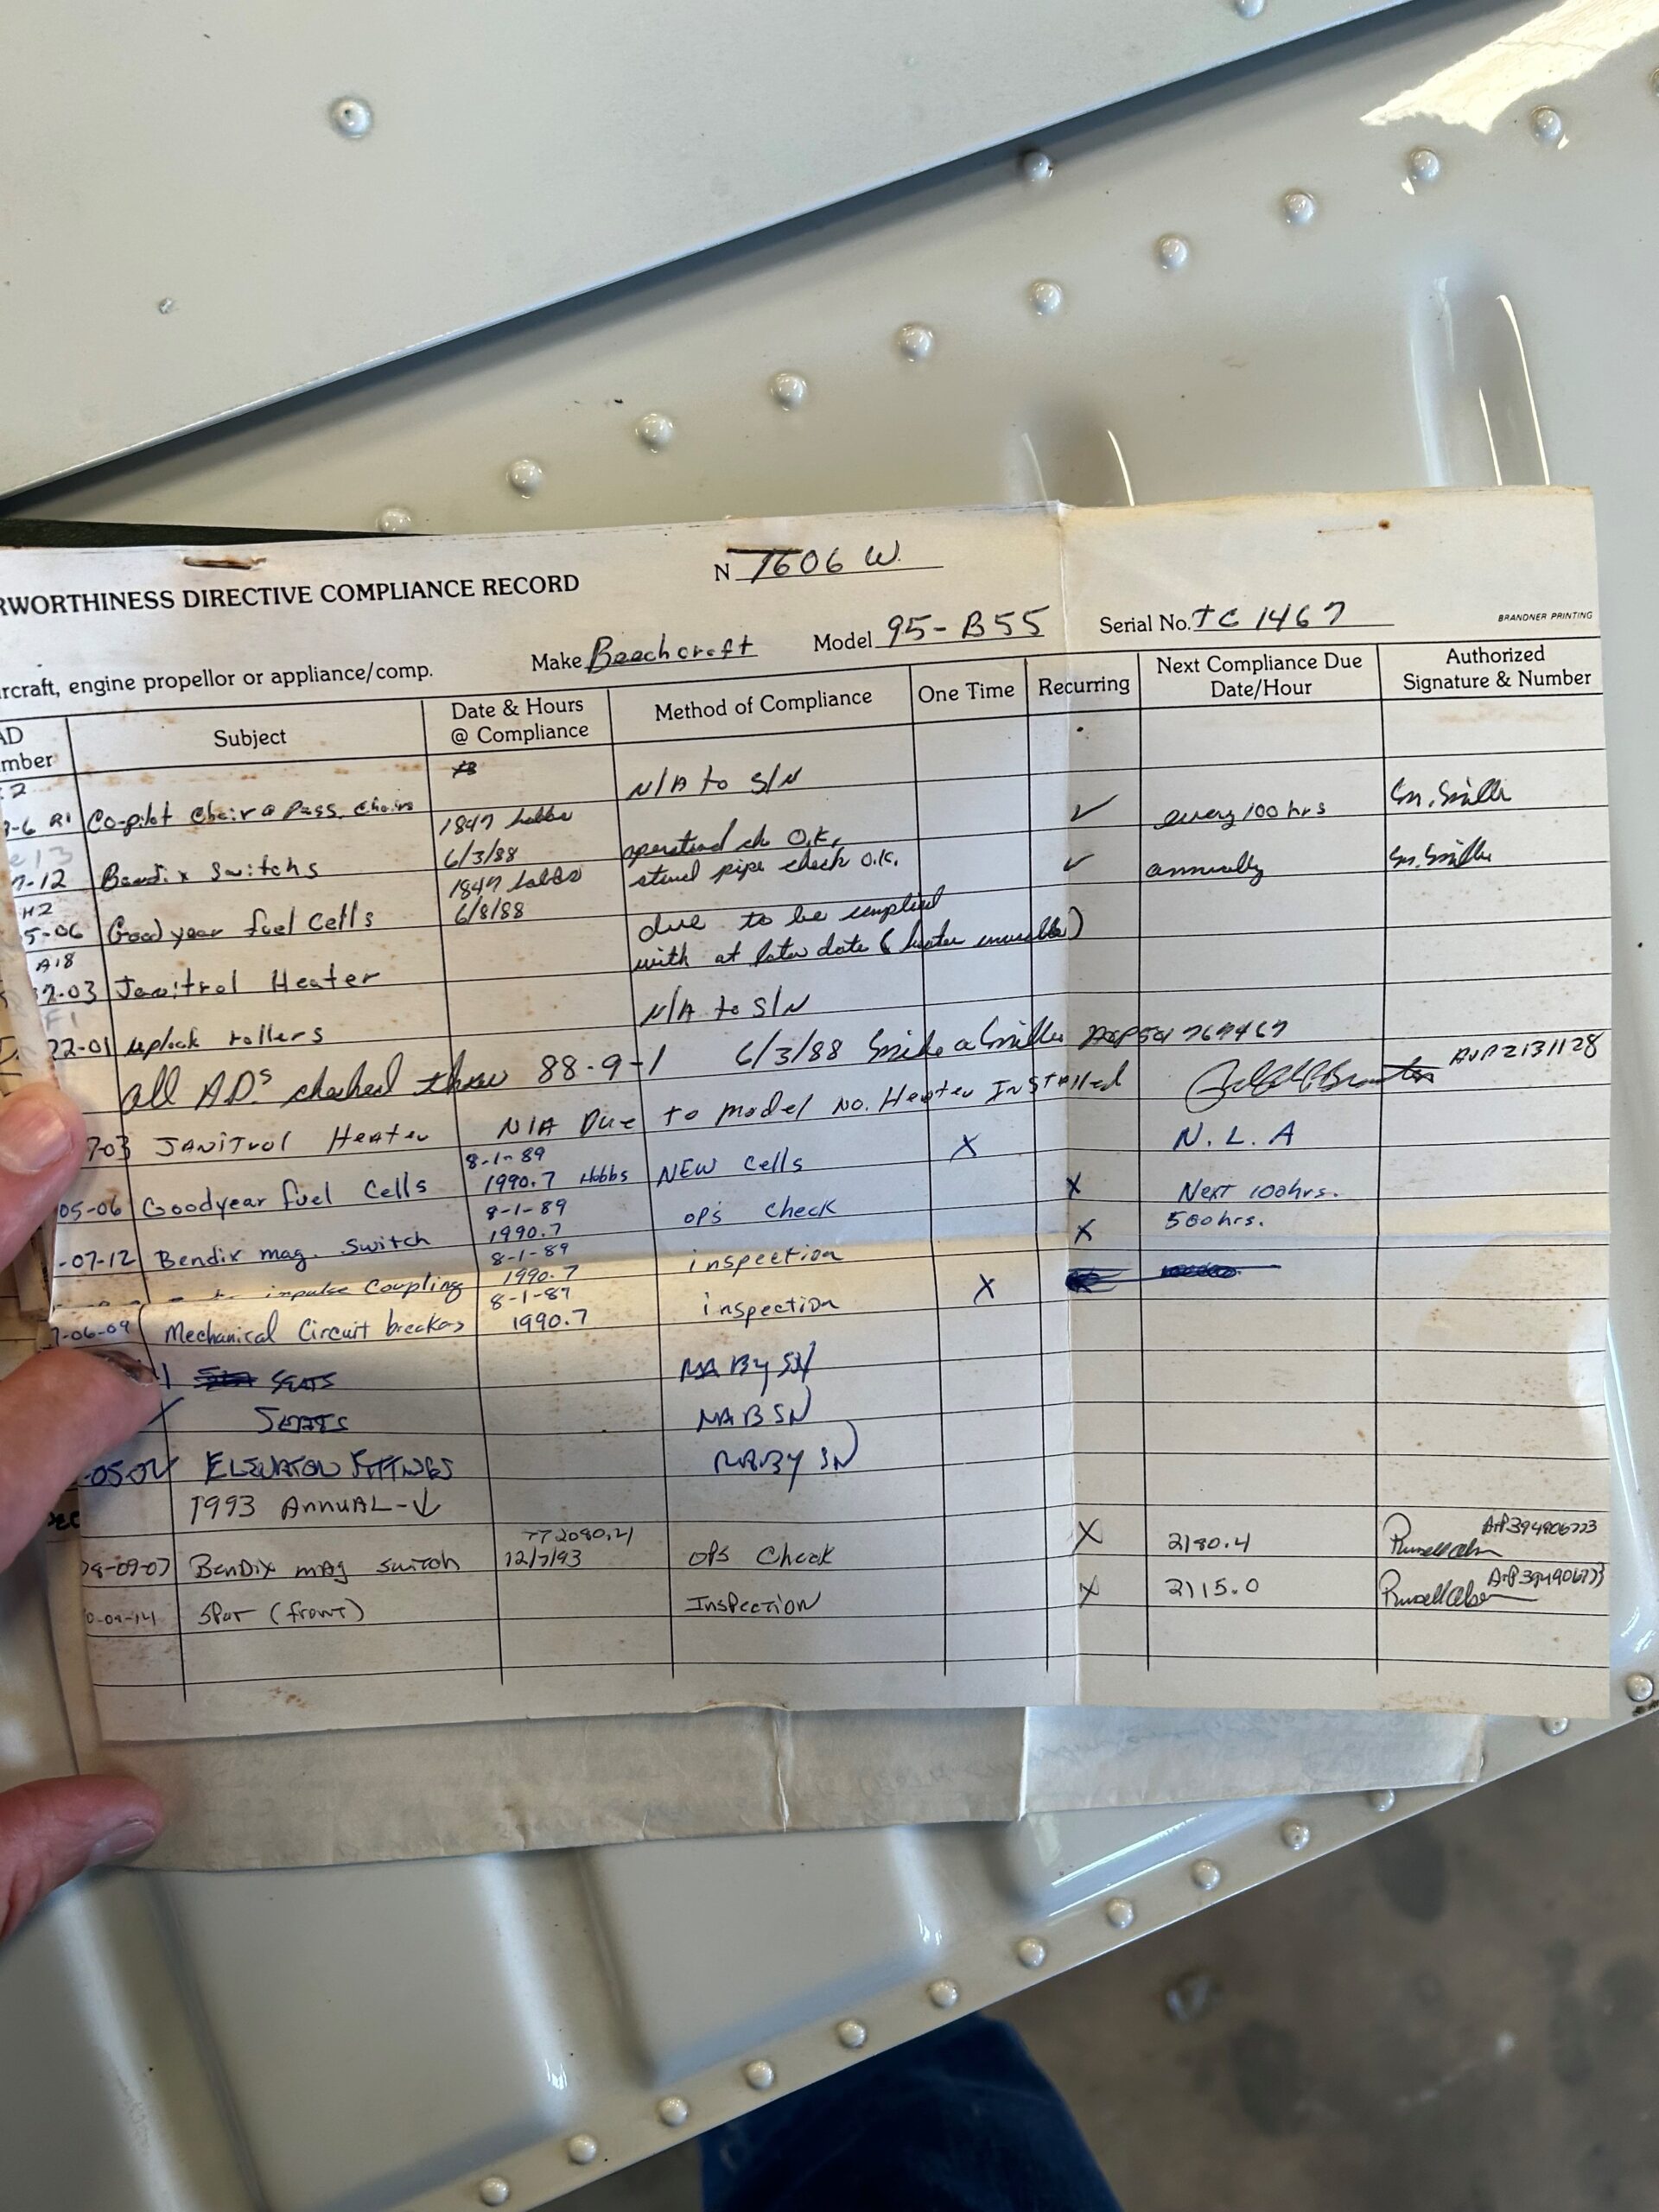 RWORTHINESS DIRECTIVE COMPLIANCE RECORD
N 7606 W.
rcraft, engine propellor or appliance/comp.
Make Beechcraft Model 95-B55 Serial No. TC 1467
BRANDNER PRINTING
AD mber Subject Date & Hours @ Compliance Method of Compliance One Time Recurring Next Compliance Due Date/Hour Authorized Signature & Number
-6 R1 Co-pilot Chair & Pass. Chairs N/A to S/N
7-12 Bendix Switchs 1847 hobbs 6/3/88 operational ch O.K. ✓ every 100 hrs
5-06 Goodyear fuel Cells 1847 hobbs 6/8/88 stand pipe check O.K. ✓ annually
A18
7-03 Janitrol Heater due to be complied with at later date (heater
22-01 uplock rollers N/A to S/N
all ADs checked thru 88-9-1 6/3/88
7-03 JANiTrol Heater N/A Due to Model No. Heater Installed A&P 2131128
05-06 Goodyear fuel Cells 8-1-89 1990.7 Hobbs NEW Cells X N.L.A
-07-12 Bendix mag. Switch 8-1-89 1990.7 ops check X Next 100hrs.
impulse Coupling 8-1-89 1990.7 inspection X 500hrs.
-06-09 Mechanical Circuit breakers 8-1-89 1990.7 inspection X
1 SEATS NA By SN
SEATS NA B SN
-05-02 ELEVATOR FITTINGS NA BY SN
1993 ANNUAL-↓
-09-07 BenDix mag switch TT 2080.4 12/7/93 OPS Check X 2180.4 A+P394906773
0-09-14 SPar (front) InsPecTion X 2115.0 A+P394906773